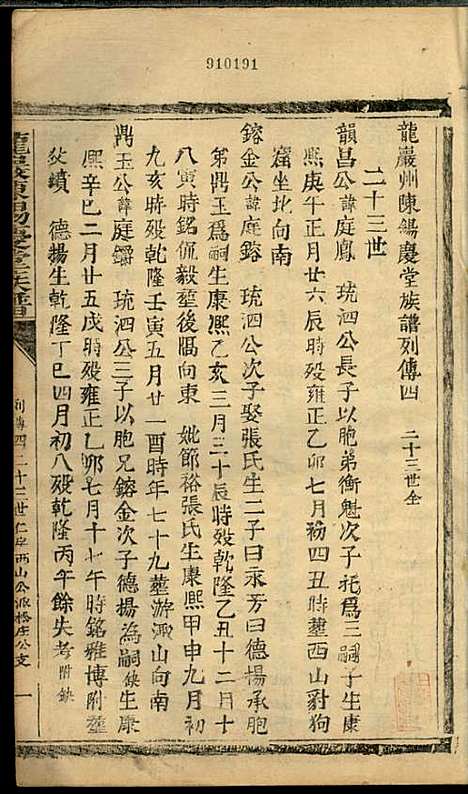 910191
龍巖州陳錫慶堂族譜列傳四 二十三世全
二十三世
韻昌公諱庭鳳 琉泗公長子以胞弟衡魁次子托為三嗣子生康
熙庚午正月廿六辰時殁雍正乙卯七月初四丑時塟西山豺狗
窟坐北向南
鎔金公諱庭鎔 琉泗公次子娶張氏生二子曰永芳曰德揚承胞
弟鼎玉為嗣生康熙乙亥三月三十辰時殁乾隆乙丑十二月十
八寅時銘侃毅塟後隔向東 妣節裕張氏生康熙甲申九月初
九亥時殁乾隆壬寅五月廿一酉時年七十九塟游溅山向南
鼎玉公諱庭鑼 琉泗公三子以胞兄鎔金次子德揚為嗣缺生康
熙辛巳二月廿五戌時殁雍正乙卯七月十七午時銘雅博附塟
狄墳 德揚生乾隆丁巳四月初八殁乾隆丙午餘失考附缺
龍巖陳錫慶堂族譜
列傳四 二十三世 仁岸西山公派橋庄公支 一